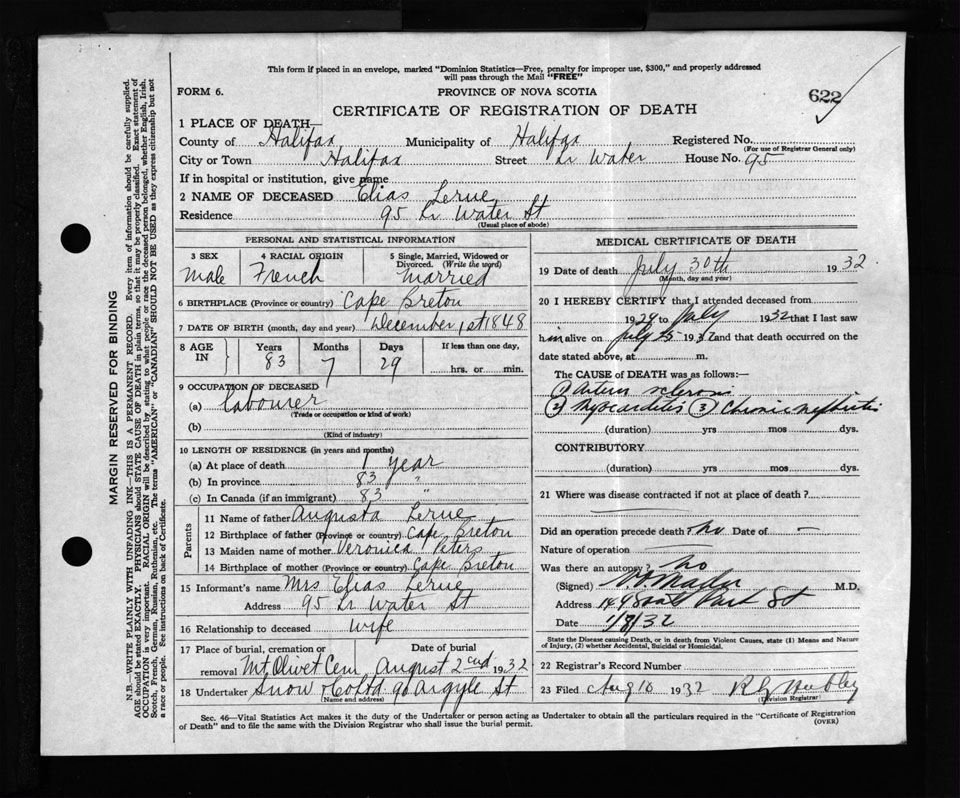 This form if placed in an envelope, marked "Dominion Statistics—Free, penalty for improper use, $300," and properly addressed
will pass through the Mail "FREE"
FORM 6.
PROVINCE OF NOVA SCOTIA
622
CERTIFICATE OF REGISTRATION OF DEATH
1 PLACE OF DEATH—
County of Halifax Municipality of Halifax Registered No.
(For use of Registrar General only)
City or Town Halifax Street Lr Water House No. 95
If in hospital or institution, give name
2 NAME OF DECEASED Elias Lerue
Residence 95 Lr Water St
(Usual place of abode)
PERSONAL AND STATISTICAL INFORMATION
3 SEX 4 RACIAL ORIGIN 5 Single, Married, Widowed or
Divorced. (Write the word)
Male French Married
6 BIRTHPLACE (Province or country) Cape Breton
7 DATE OF BIRTH (month, day and year) December 1st 1848
8 AGE IN Years Months Days If less than one day,
83 7 29 hrs. or min.
9 OCCUPATION OF DECEASED
(a) Labourer
(Trade or occupation or kind of work)
(b)
(Kind of industry)
10 LENGTH OF RESIDENCE (in years and months)
(a) At place of death 1 year
(b) In province 83 "
(c) In Canada (if an immigrant) 83 "
Parents
11 Name of father Augusta Lerue
12 Birthplace of father (Province or country) Cape Breton
13 Maiden name of mother Veronica Peters
14 Birthplace of mother (Province or country) Cape Breton
15 Informant's name Mrs Elias Lerue
Address 95 Lr Water St
16 Relationship to deceased wife
17 Place of burial, cremation or Date of burial
removal Mt Olivet Cem August 2nd 1932
18 Undertaker Snow & Co Ltd 90 Argyle St
(Name and address)
MEDICAL CERTIFICATE OF DEATH
19 Date of death July 30th 1932
(Month, day and year)
20 I HEREBY CERTIFY that I attended deceased from
1929 to July 1932 that I last saw
him alive on July 1932 and that death occurred on the
date stated above, at m.
The CAUSE of DEATH was as follows:—
(1) sclerosis
(2) Myocarditis (3) Chronic nephritis
(duration) yrs mos dys.
CONTRIBUTORY
(duration) yrs mos dys.
21 Where was disease contracted if not at place of death?
Did an operation precede death? No Date of —
Nature of operation
Was there an autopsy? No
(Signed) M.D.
Address 149 Park St
Date 1/8/32
State the Disease causing Death, or in death from Violent Causes, state (1) Means and Nature
of Injury, (2) whether Accidental, Suicidal or Homicidal.
22 Registrar's Record Number
23 Filed Aug 10 1932
(Division Registrar)
Sec. 46—Vital Statistics Act makes it the duty of the Undertaker or person acting as Undertaker to obtain all the particulars required in the "Certificate of Registration
of Death" and to file the same with the Division Registrar who shall issue the burial permit.
(OVER)
MARGIN RESERVED FOR BINDING
N.B.—WRITE PLAINLY WITH UNFADING INK—THIS IS A PERMANENT RECORD. Every item of information should be carefully supplied.
AGE should be stated EXACTLY. PHYSICIANS should STATE CAUSE OF DEATH in plain terms, so that it may be properly classified. Exact statement of
OCCUPATION is very important. RACIAL ORIGIN will be described by stating to what people or race the deceased person belonged, whether English, Irish,
Scotch, French, German, Russian, Ruthenian, etc. The terms "AMERICAN" or "CANADIAN" SHOULD NOT BE USED as they express citizenship but not
a race or people. See instructions on back of Certificate.